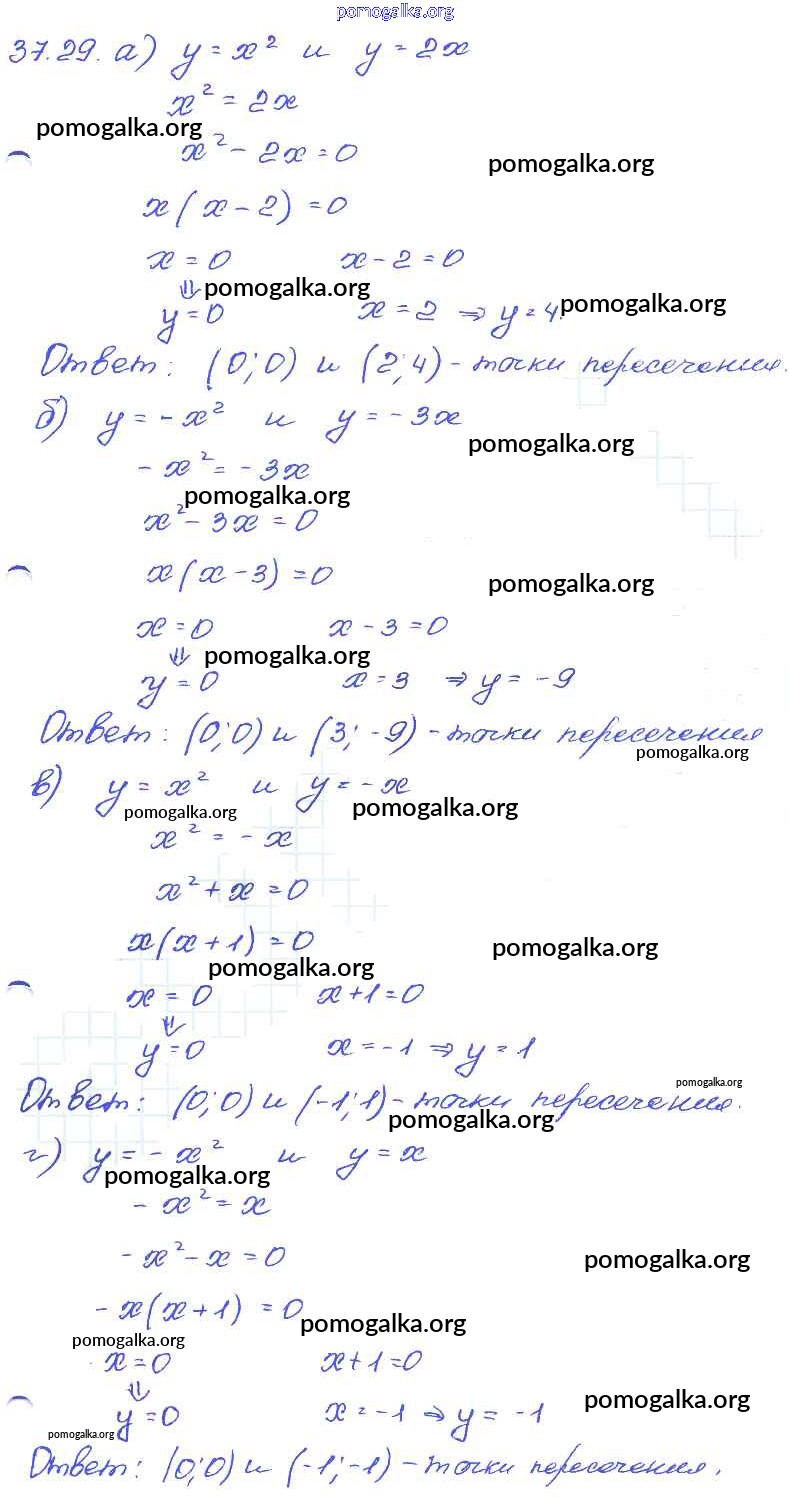 pomogalka.org
37.29. а) y = x² и y = 2x
x² = 2x
pomogalka.org
x² - 2x = 0
pomogalka.org
x(x - 2) = 0
x = 0 x - 2 = 0
⇓ pomogalka.org
y = 0 x = 2 ⇒ y = 4. pomogalka.org
Ответ: (0; 0) и (2; 4) - точки пересечения.
б) y = -x² и y = -3x
pomogalka.org
-x² = -3x
pomogalka.org
x² - 3x = 0
x(x - 3) = 0 pomogalka.org
x = 0 x - 3 = 0
⇓ pomogalka.org
y = 0 x = 3 ⇒ y = -9
Ответ: (0; 0) и (3; -9) - точки пересечения
pomogalka.org
в) y = x² и y = -x
pomogalka.org pomogalka.org
x² = -x
x² + x = 0
x(x + 1) = 0 pomogalka.org
pomogalka.org
x = 0 x + 1 = 0
⇓
y = 0 x = -1 ⇒ y = 1
pomogalka.org
Ответ: (0; 0) и (-1; 1) - точки пересечения.
pomogalka.org
г) y = -x² и y = x
pomogalka.org
-x² = x
-x² - x = 0 pomogalka.org
-x(x + 1) = 0 pomogalka.org
pomogalka.org
x = 0 x + 1 = 0
⇓ pomogalka.org
y = 0 x = -1 ⇒ y = -1
pomogalka.org
Ответ: (0; 0) и (-1; -1) - точки пересечения.